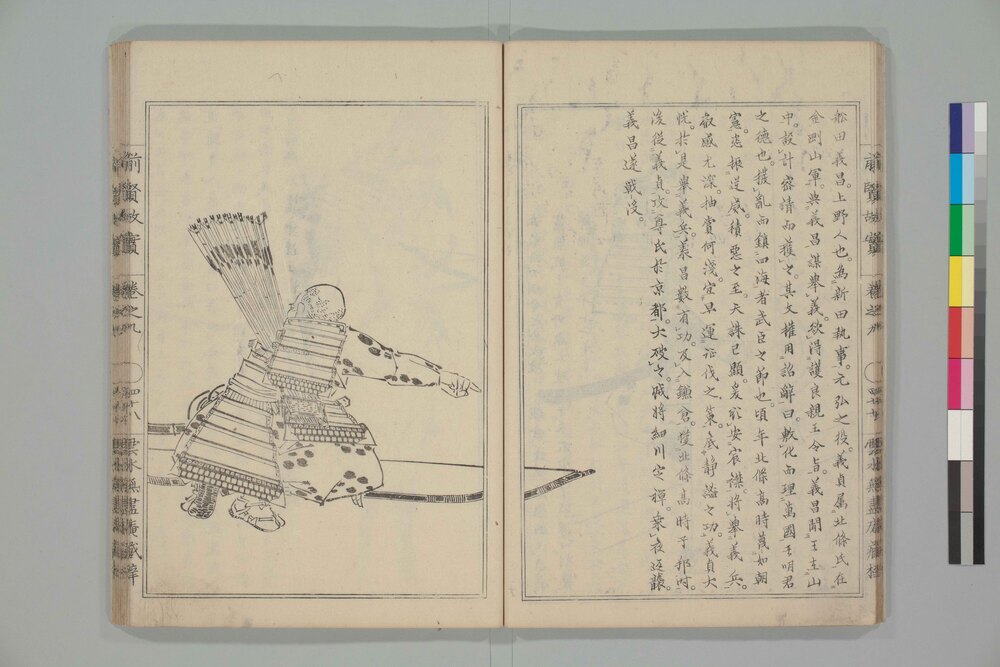 舩田義昌。上野人也。為新田執事。元弘之役。義貞属北條氏在
金剛山軍。與義昌謀挙義。欲得護良親王令旨。義昌聞王在山
中。設計密請而獲之。其文権用詔辭曰。敷化而理萬國者明君
之徳也。撥亂而鎮四海者武臣之節也。頃年北條高時蔑如朝
憲。恣振逆威。積惡之至。天誅已顕。爰欲安宸襟。将挙義兵。
叡感尤深。抽賞何淺。宜早運征伐之策。底静謐之功。義貞大
悦。於是挙義兵。義昌數有功。及入鎌倉。獲北條高時子邦時。
後從義貞。攻尊氏於京都。大破之。賊将細川定禅。乗夜逆襲。
義昌遂戰没。
前賢故實
巻之九
雲水無盡庵藏梓
前賢故實
巻之九
雲水無盡庵藏梓